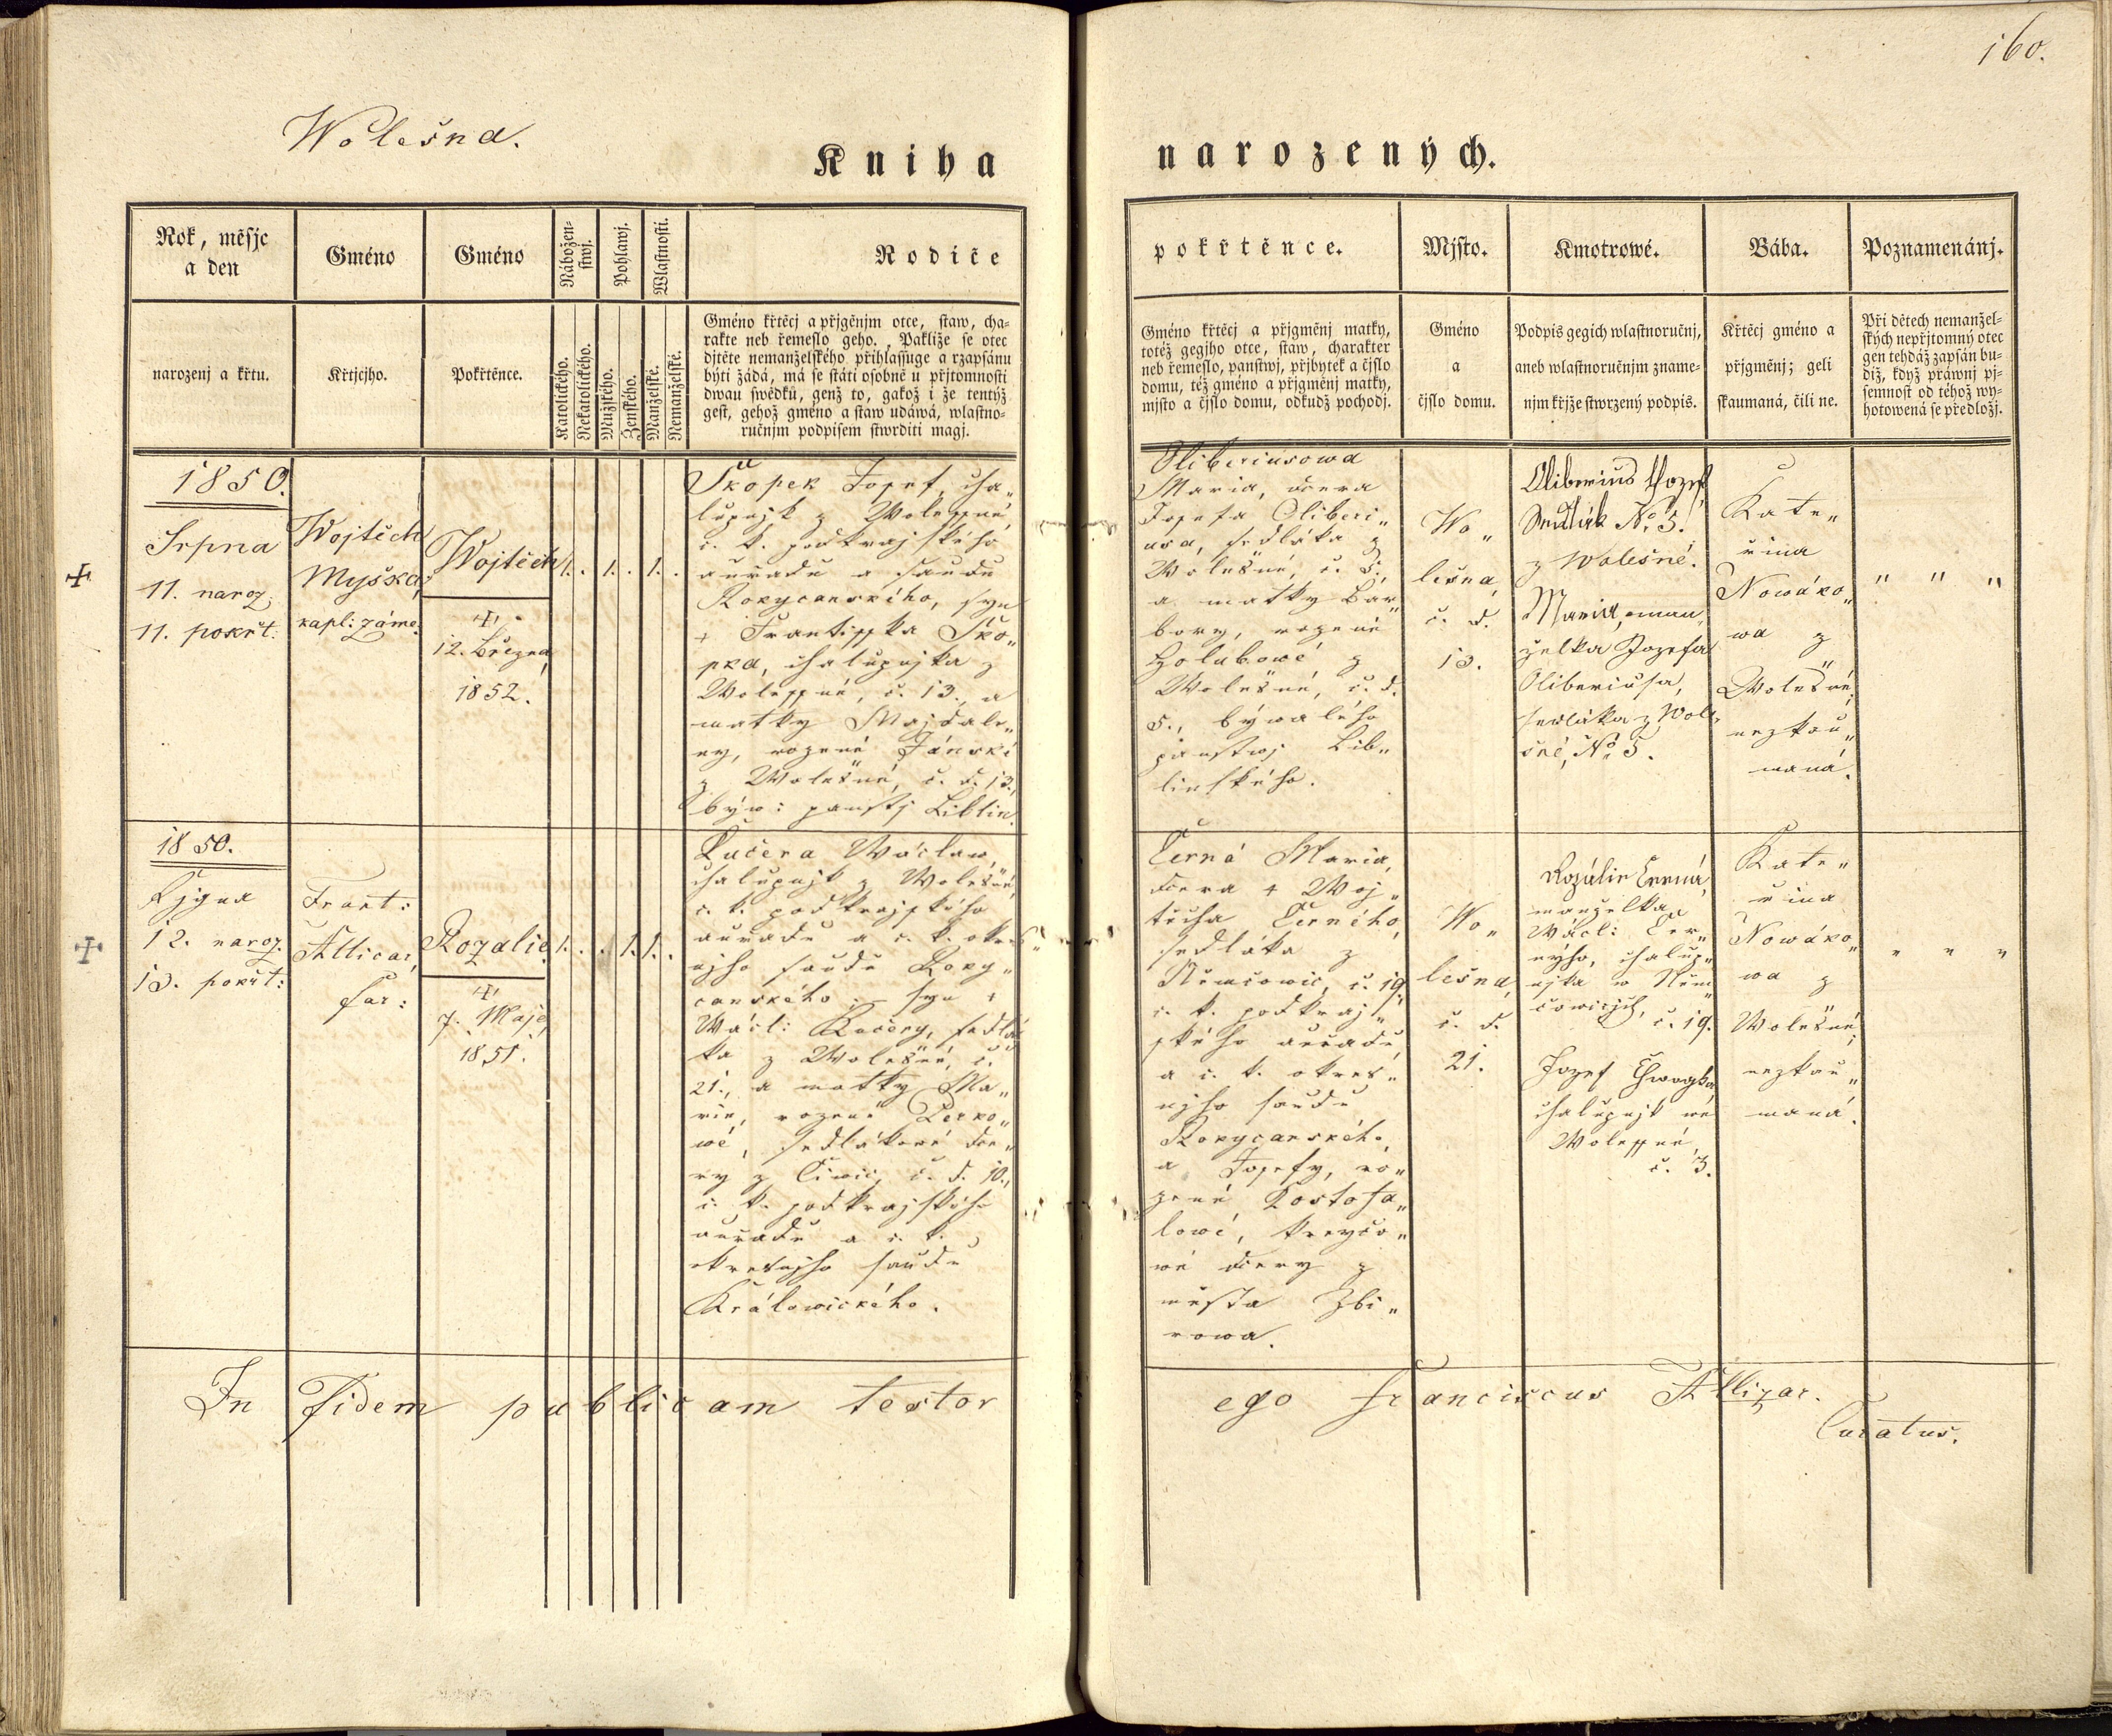 160.
Wolešna.
Kniha
narozených.
Rok, měsjc
a den
Gméno
Gméno
Nábožen-
stwj.
Pohlawj.
Wlastnosti.
Rodiče
pokřtěnce.
Mjsto.
Kmotrowé.
Bába.
Poznamenánj.
narozenj a křtu.
Křtjcjho.
Pokřtěnce.
Katolického.
Nekatolického.
Mužského.
Ženského.
Manželské.
Nemanželské.
Gméno křtěcj a přjgěnjm otce, staw, cha-
rakte neb řemeslo geho. Pakliže se otec
djtěte nemanželského přihlassuge a rzapsánu
býti žádá, má se státi osobně u přjtomnosti
dwau swědků, genž to, gakož i že tentýž
gest, gehož gméno a staw udáwá, wlastno-
ručnjm podpisem stwrditi magj.
Gméno křtěcj a přjgměnj matky,
totéž gegjho otce, staw, charakter
neb řemeslo, panstwj, přjbytek a čjslo
domu, též gméno a přjgměnj matky,
mjsto a čjslo domu, odkudž pochodj.
Gméno
a
čjslo domu.
Podpis gegich wlastnoručnj,
aneb wlastnoručnjm zname-
njm křjže stwrzený podpis.
Křtěcj gméno a
přjgměnj; geli
skaumaná, čili ne.
Při dětech nemanžel-
ských nepřjtomný otec
gen tehdáž zapsán bu-
diž, když práwnj pj-
semnost od téhož wy-
hotowená se předložj.
1850.
Srpna
11. naroz.
11. pokřt:
Wojtěch
Myška,
kapl: záme:
Wojtěch
12. Března
1852.
1. . 1. . 1. .
Škopek Jozef, cha„
lupnjk z Wolessné,
c. k. podkrajského
auřadu a saudu
Rokycanského, syn
+ Frantisska Sko„
pka, chalupnjka z
Wolessné, č. 13. a
matky Majdale„
ny, rozené Jánské
z Wolešné, č. d. 13.,
býw: panstj Liblin.
Oliberiusowa
Maria, dcera
Josefa Oliberi„
usa, sedláka z
Wolešné, č. 5.,
a matky Bar„
bory, rozené
Holubowé z
Wolešné, č. d.
5., býwalého
panstwj Lib„
linského.
Wo„
lešna,
č. d.
13.
Oliberius Jozef
Sedlák No 5.
z Wolešné.
Maria, man„
želka Jozefa
Oliberiusa,
sedláka z Wole„
šné, No 5.
Kate„
řina
Nowáko„
wa z
Wolešné,
nezkau„
maná.
" " "
1850.
Řjgna
12. naroz.
13. pokřt:
Frant:
Allicar,
far:
Rozalie.
7. Maje,
1851.
1. . . 1. 1. .
Kučera Wáclaw,
chalupnjk z Wolešné,
c. k. podkrajského
auřadu a c. k. okres„
njho saudu Roky„
canského; syn +
Wácl: Kučery, sedlá„
ka z Wolešné, č.
21., a matky Ma„
rie, rozené Perko„
wé, sedlákowé dce„
ry z Čiwic, č. d. 10.,
c. k. podkrajského
auřadu a c. k.
okresnjho saudu
Králowického.
Černá Maria,
dcera + Woj„
těcha Černého,
sedláka z
Němčowic, č. 19.,
c. k. podkraj„
ského auřadu,
a c. k. okres„
njho saudu
Rokycanského,
a Josefy, ro„
zené Kostoha„
lowé, kreyčo„
wé dcery z
města Zbi„
rowa.
Wo„
lešna,
č. d.
21.
Rozálie Černá,
manželka
Wácl: Čer„
nýho, chalup„
njka w Něm„
čowicjch, č. 19.
Jozef
chalupnjk we
Wolessné,
č. 3.
Kate„
řina
Nowáko„
wa z
Wolešné,
nezkau„
maná.
" " "
In Fidem publicam testor
ego Franciscus Allizar.
Curatus.